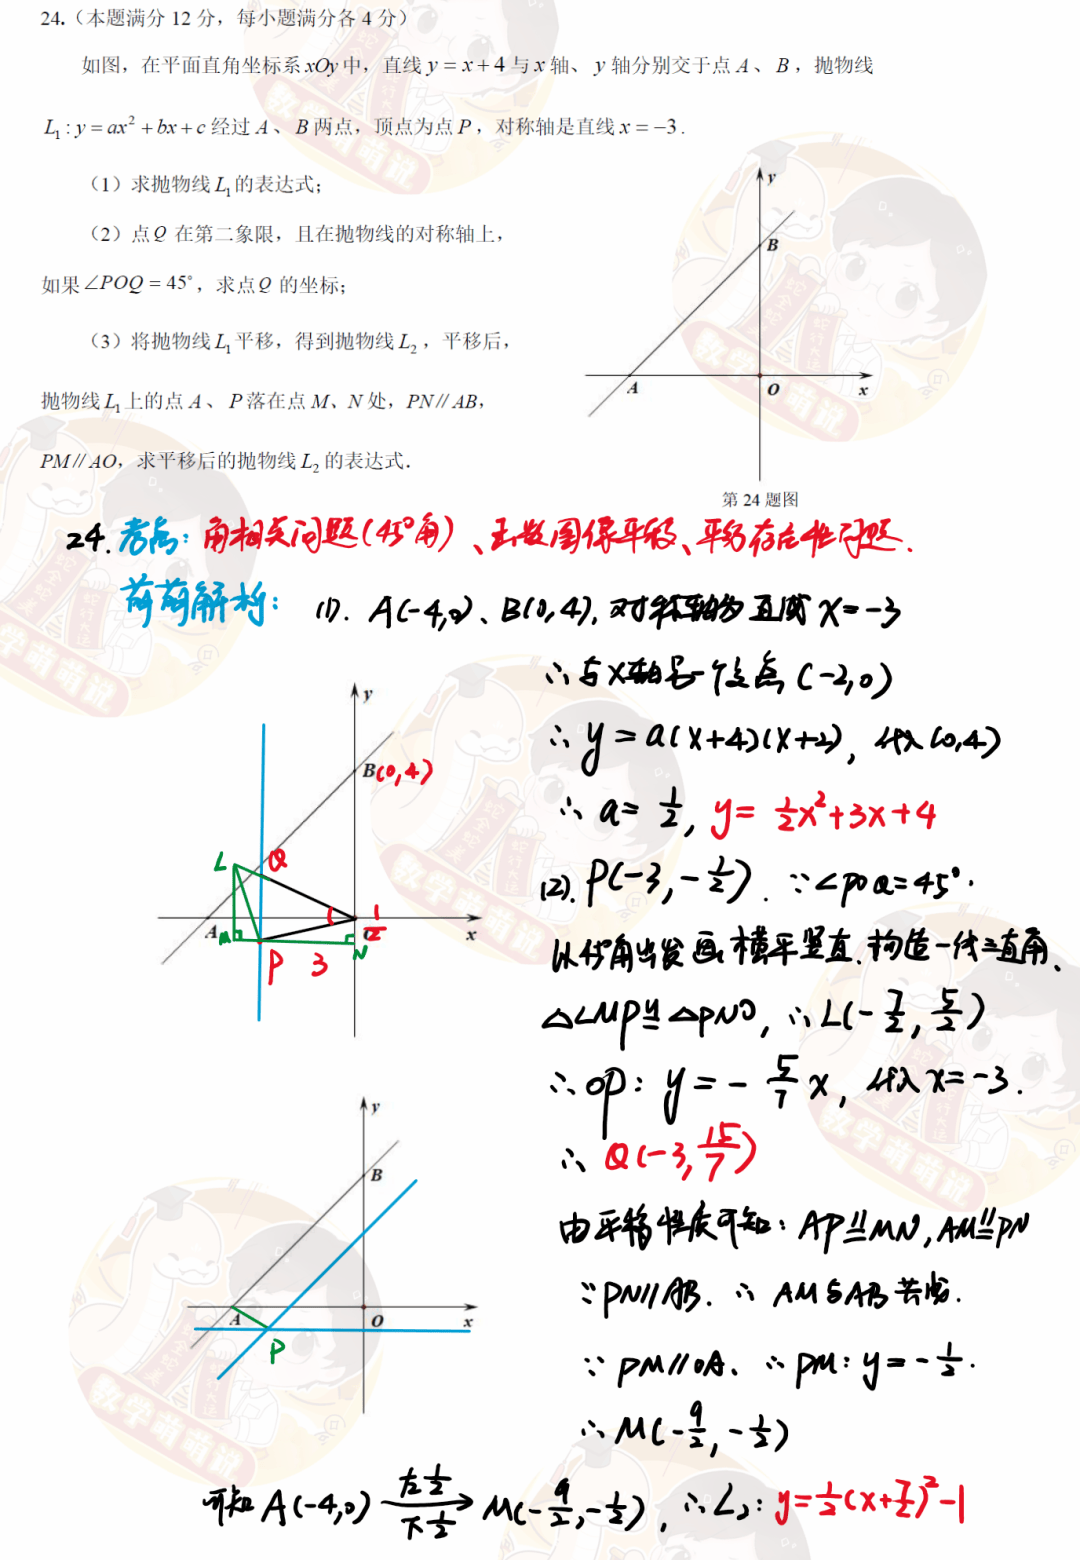 24.（本题满分 12 分，每小题满分各 4 分）
如图，在平面直角坐标系 xOy 中，直线 y = x + 4 与 x 轴、y 轴分别交于点 A、B，抛物线
L₁ : y = ax² + bx + c 经过 A、B 两点，顶点为点 P，对称轴是直线 x = −3．
（1）求抛物线 L₁ 的表达式；
（2）点 Q 在第二象限，且在抛物线的对称轴上，
如果 ∠POQ = 45°，求点 Q 的坐标；
（3）将抛物线 L₁ 平移，得到抛物线 L₂，平移后，
抛物线 L₁ 上的点 A、P 落在点 M、N 处，PN // AB，
PM // AO，求平移后的抛物线 L₂ 的表达式．
y
B
A
O
x
第 24 题图
24. 考点：角相关问题(45°角)、函数图像平移、平移存在性问题.
萌萌解析：(1). A(-4,0)、B(0,4), 对称轴为直线 x=-3
∴与x轴另一个交点(-2,0)
∴ y=a(x+4)(x+2), 代入(0,4)
∴ a=1/2, y=1/2x²+3x+4
y
B(0,4)
L
Q
A
M
1/2
x
P
3
N
(2). P(-3,-1/2). ∵∠POQ=45°.
以45°角出发画横平竖直,构造一线三直角、
△LMP≌△PNO, ∴L(-7/2, 5/2)
∴OP: y=-5/7x, 代入x=-3.
∴ Q(-3, 15/7)
y
B
A
O
x
P
由平移性质可知: AP∥=MN, AM∥=PN
∵PN//AB. ∴ AM与AB共线.
∵ PM//OA、∴ PM: y=-1/2.
∴ M(-9/2, -1/2)
可知 A(-4,0) 左1/2 下1/2 → M(-9/2, -1/2), ∴L₂: y=1/2(x+7/2)²-1